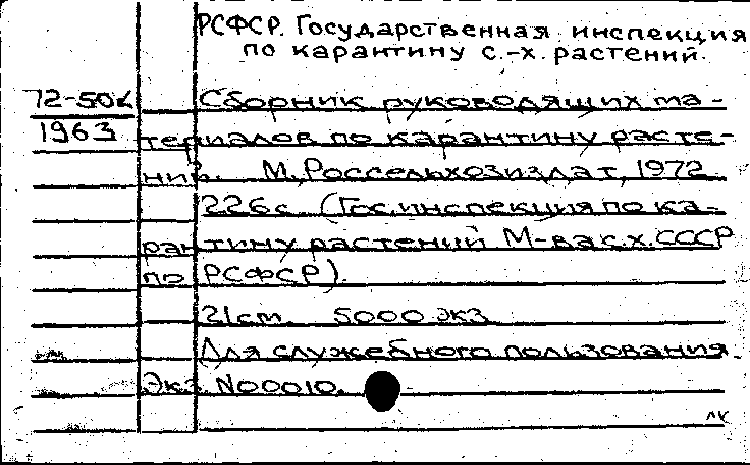 РСФСР. Государственная инспекция
по карантину с.-х. растений.
72-50к
Сборник руководящих ма-
1963
териалов по карантину расте-
ний. М., Россельхозиздат, 1972
226с. (Гос. инспекция по ка-
рантину растений М-ва с.х. СССР
по РСФСР).
21cm 5000 экз
Для служебного пользования.
Экз. N00010.